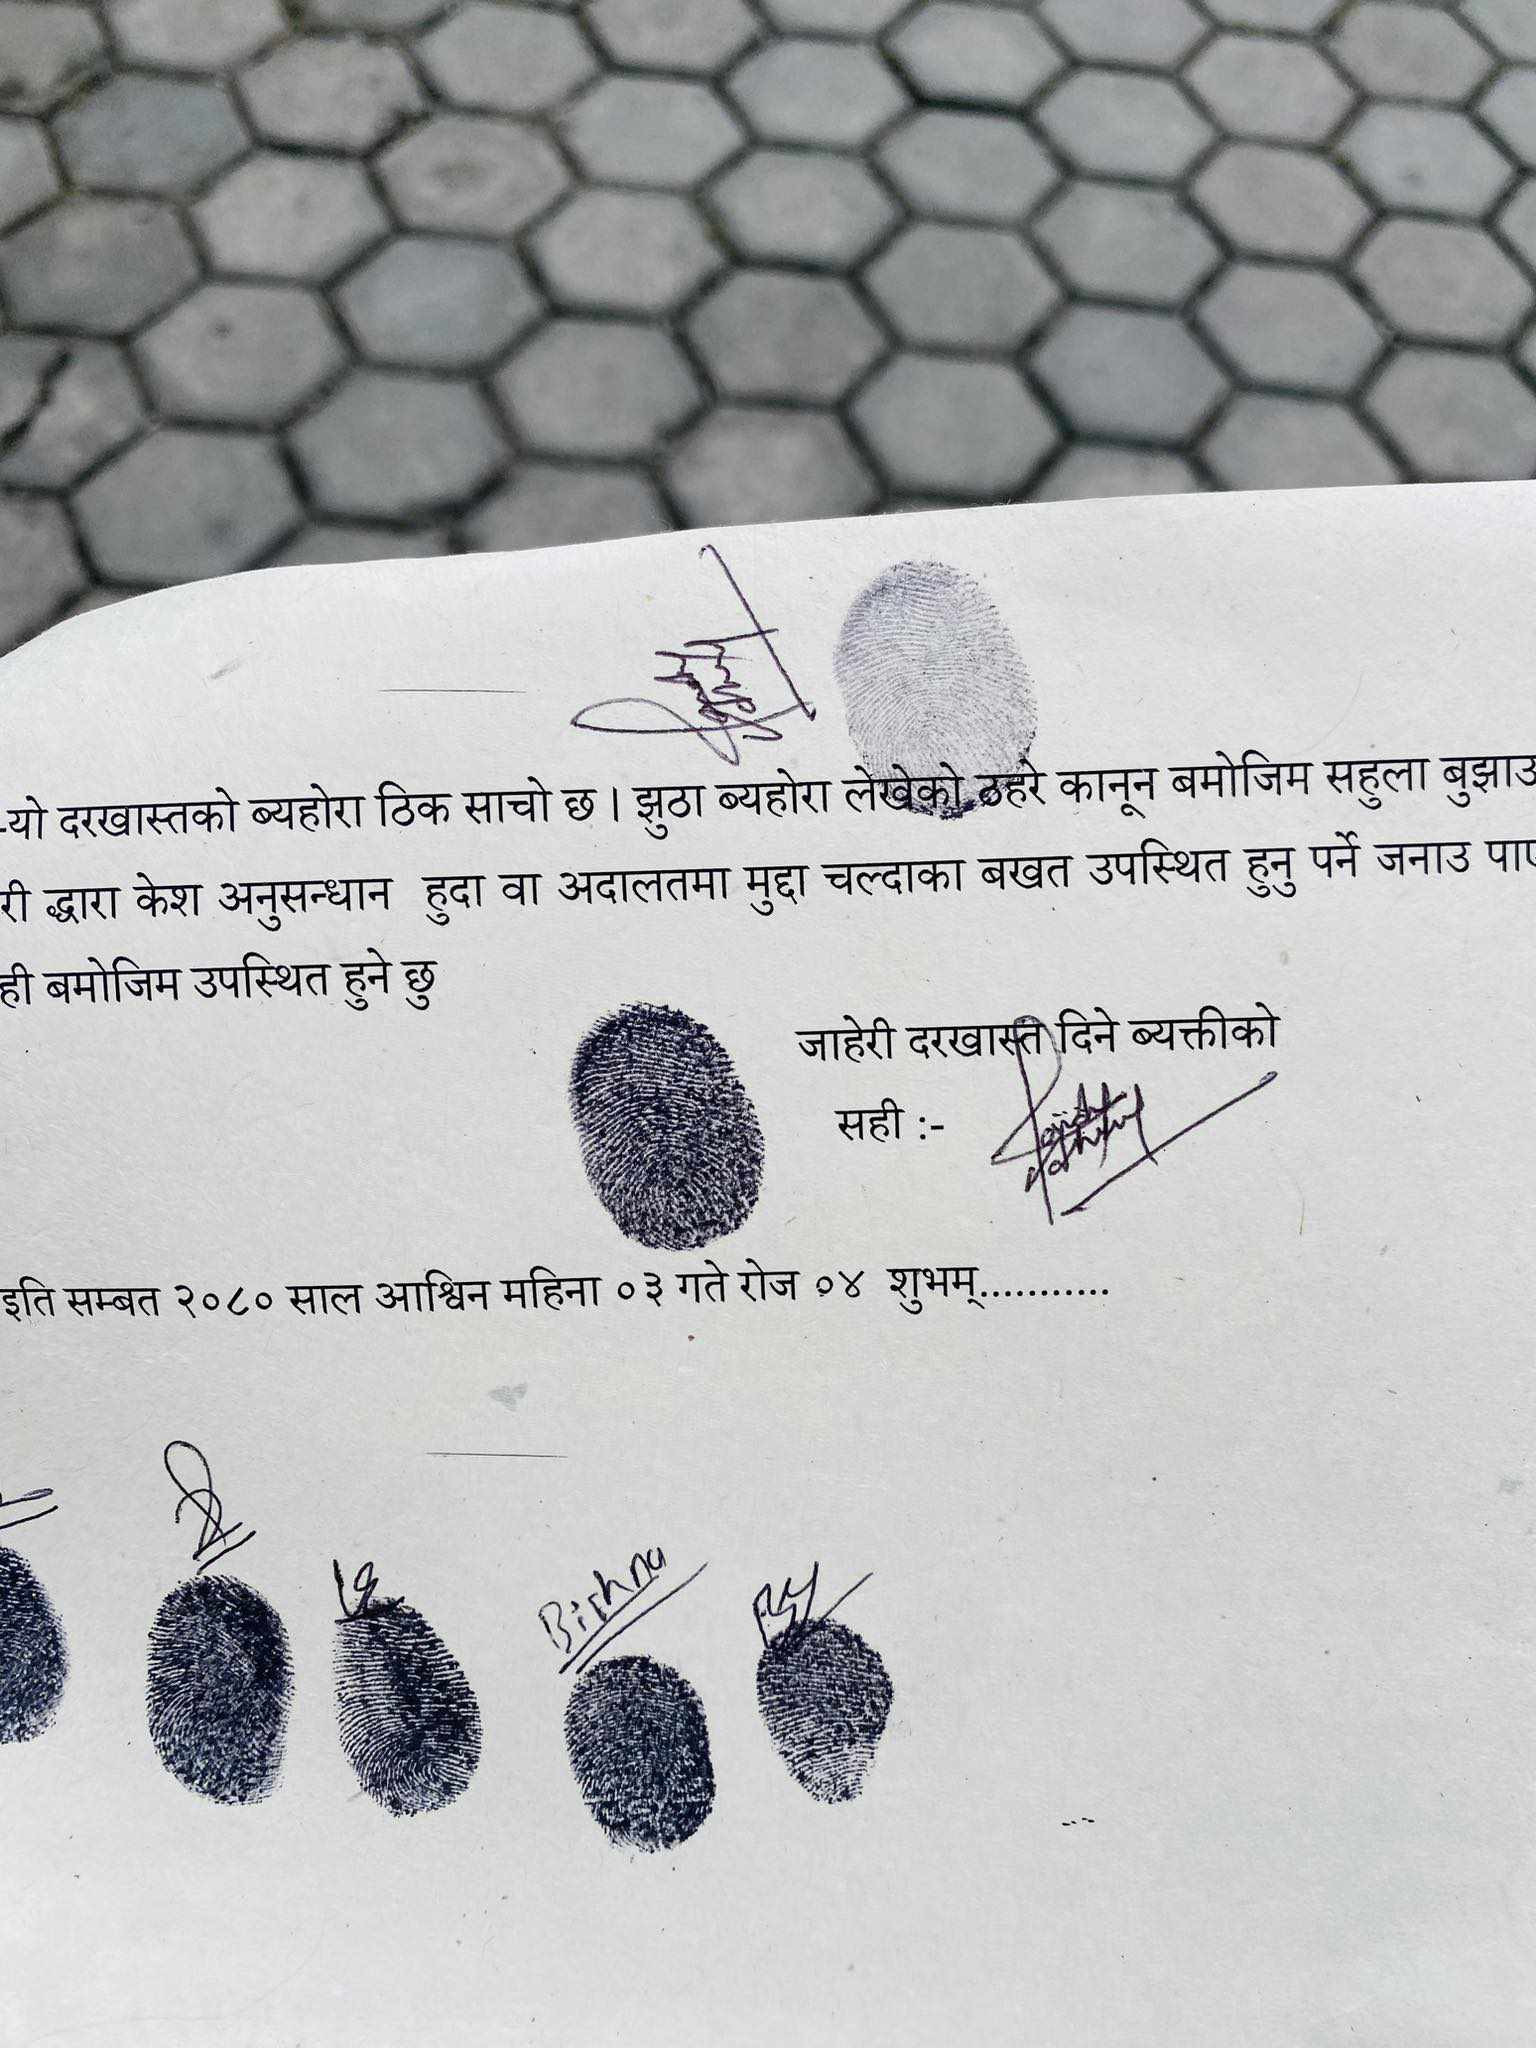 -यो दरखास्तको ब्यहोरा ठिक साचो छ । झुठा ब्यहोरा लेखेको ठहरे कानून बमोजिम सहुला बुझाउ
री द्धारा केश अनुसन्धान हुदा वा अदालतमा मुद्दा चल्दाका बखत उपस्थित हुनु पर्ने जनाउ पाए
ही बमोजिम उपस्थित हुने छु
जाहेरी दरखास्त दिने ब्यक्तीको
सही :-
इति सम्बत २०८० साल आश्विन महिना ०३ गते रोज ०४ शुभम्............
Bishna